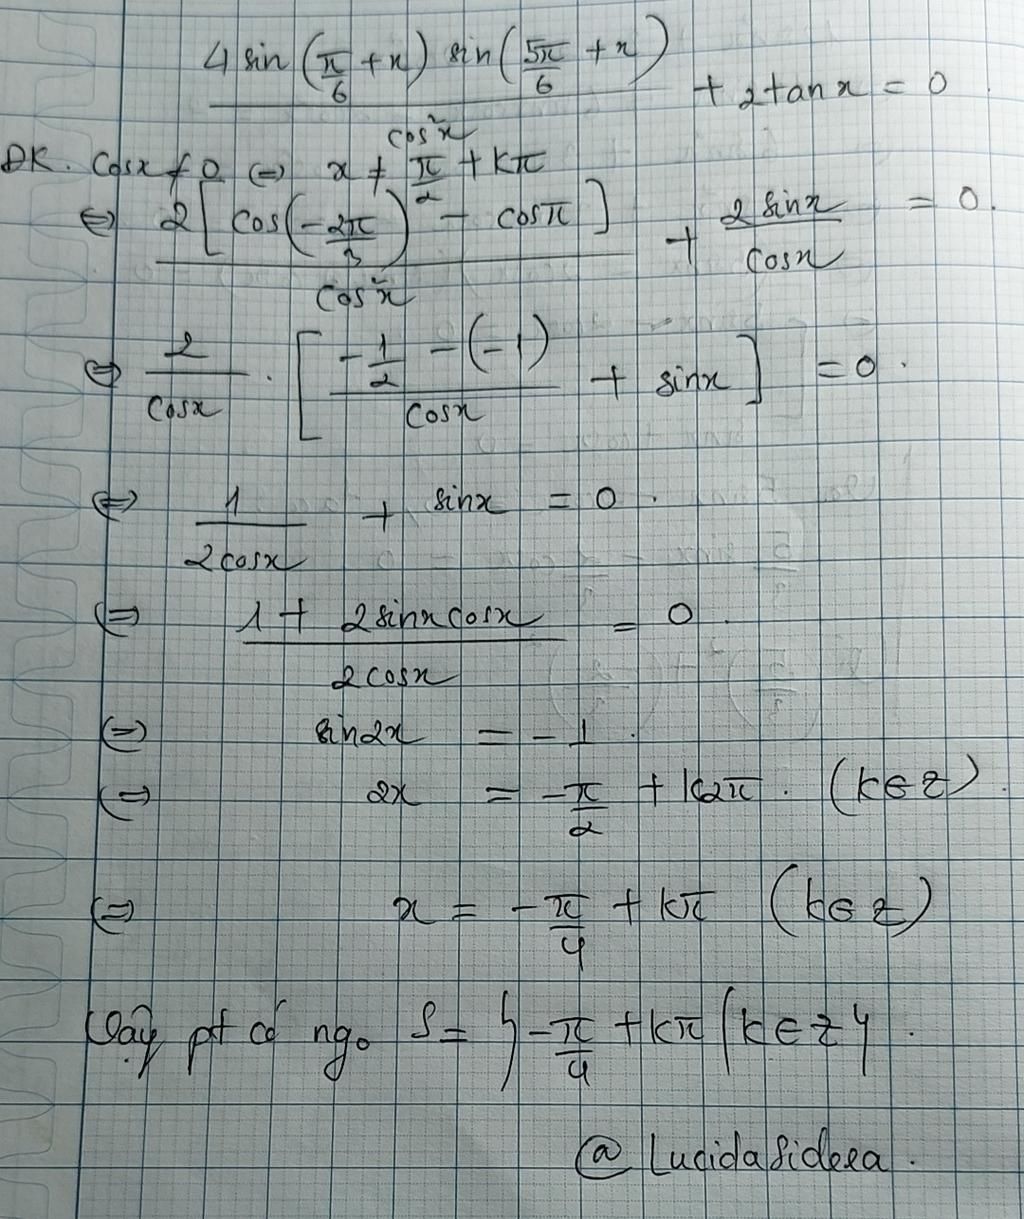 4 sin (π/6 + x) sin (5π/6 + x) / cos²x + 2 tan x = 0.
ĐK. cosx ≠ 0 ⇔ x ≠ π/2 + kπ
⇔ 2[cos(-2π/3) - cosπ] / cos²x + 2 sinx / cosx = 0.
⇔ 2/cosx . [(-1/2 - (-1))/cosx + sinx] = 0.
⇔ 1/2cosx + sinx = 0.
⇔ (1 + 2sinxcosx) / 2cosx = 0.
⇔ sin2x = -1.
⇔ 2x = -π/2 + k2π. (k∈Z).
⇔ x = -π/4 + kπ (k∈Z)
Vậy pt có ngo S = {-π/4 + kπ | k∈Z}.
@ LucidaSidera.